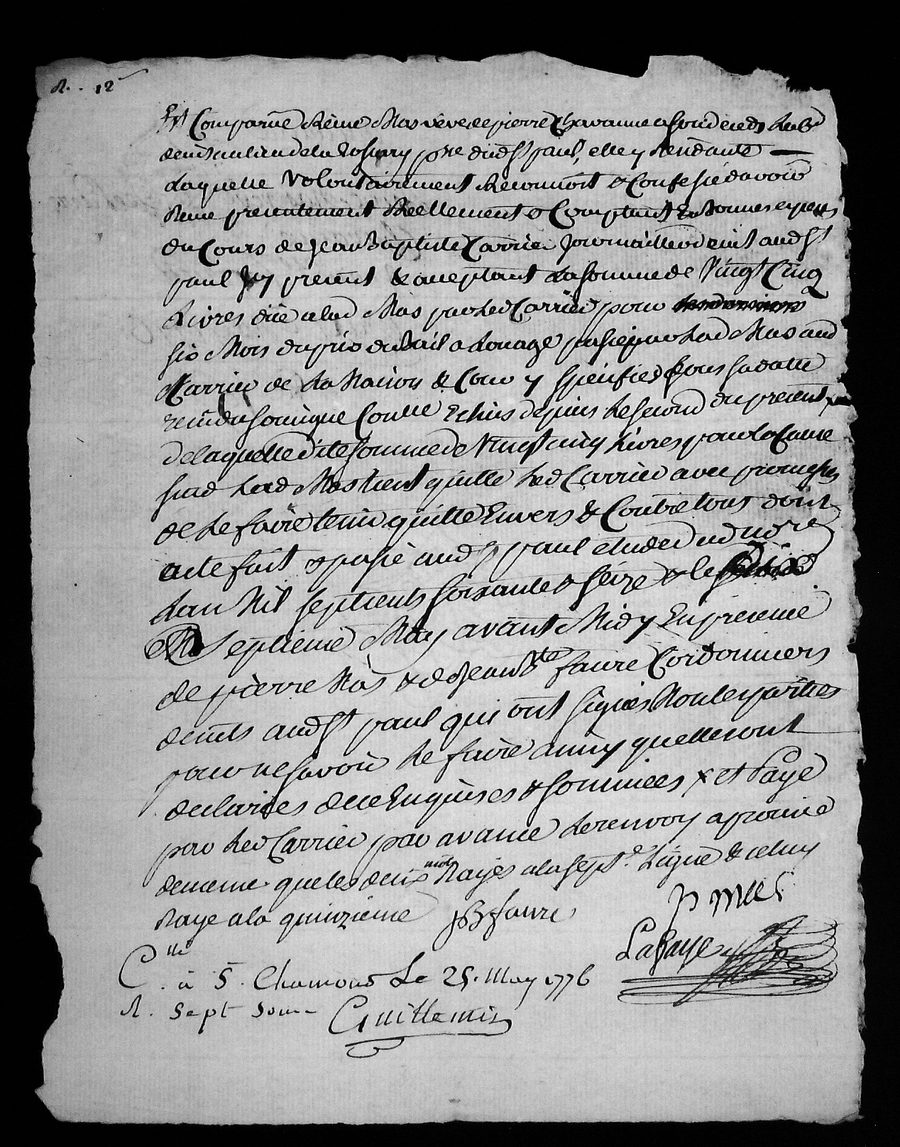 R. . 12
Est Comparüe Reine Mas veve de pierre Chavanne
de la paroisse dud St paul, elle y Rendante
Laquelle Volontairement Reconnoit & Confesse davoir
Reçue presentement Reellement & Comptant En bonnes especes
du Cours de Jean Baptiste Carrier Journaillier de ud St
paul Icy present & acceptant La somme de Vingt Cinq
Livres dite a lad Mas par led Carrier pour
six Mois du prix du Bail a Louage passé par Lad Mas aud
Carrier de La Maison & Cour y spécifiés sous sa datte
Echus depuis le second du present
de laquelle dite somme de Vingt cinq Livres pour La Cause
susd Lad Mas tient quitte led Carrier avec promesses
de Le faire tenir quitte Envers & Contre tous dont
acte fait & passé aud St paul étude du d notre
Lan Mil sept cents soixante & seize & le
Septieme May avant Midy En presence
de pierre Mas & de Jean Bte faure Cordonniers
aud St paul qui ont signés Non les parties
pour ne savoir Le faire ainsy quelles ont
déclarées de ce Enquises & sommées x et Payé
par led Carrier par avance Le renvoy aprouvé
de meme que les deux mots Rayés a la septe Ligne & celuy
Raye a la quinzieme JB faure P mas
Lafaye
Clle à S. Chamond Le 25. May 1776
R. Sept sous Guillemin